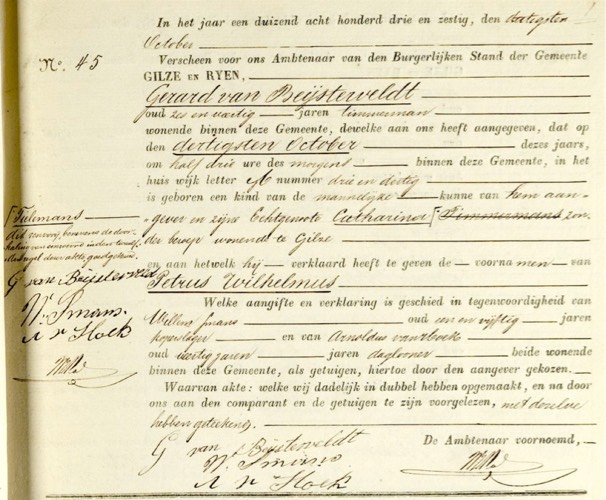 In het jaar een duizend acht honderd drie en zestig, den dertigsten
October
N°. 45
Verscheen voor ons Ambtenaar van den Burgerlijken Stand der Gemeente
GILZE EN RYEN,
Gerard van Beijsterveldt
oud zes en veertig jaren timmerman
wonende binnen deze Gemeente, dewelke aan ons heeft aangegeven, dat op
den dertigsten October dezes jaars,
om half drie ure des morgens binnen deze Gemeente, in het
huis wijk letter nummer drie en dertig
is geboren een kind van de mannelijke kunne van hem aan-
gever en zijne Echtgenoote Catharina Timmermans zon-
der beroep wonende te Gilze
en aan hetwelk hij verklaard heeft te geven de voornamen van
Petrus Wilhelmus
Welke aangifte en verklaring is geschied in tegenwoordigheid van
Willem Smans oud een en vijftig jaren
koperslager en van Arnoldus van Hoek
oud veertig jaren jaren daglooner beide wonende
binnen deze Gemeente, als getuigen, hiertoe door den aangever gekozen.
Waarvan akte: welke wij dadelijk in dubbel hebben opgemaakt, en na door
ons aan den comparant en de getuigen te zijn voorgelezen, met dezelve
hebben geteekend.
Tielemans
G van Beijsterveld
W. Smans
A v Hoek
G van Beijsterveldt
W. Smans
A v Hoek
De Ambtenaar voornoemd,